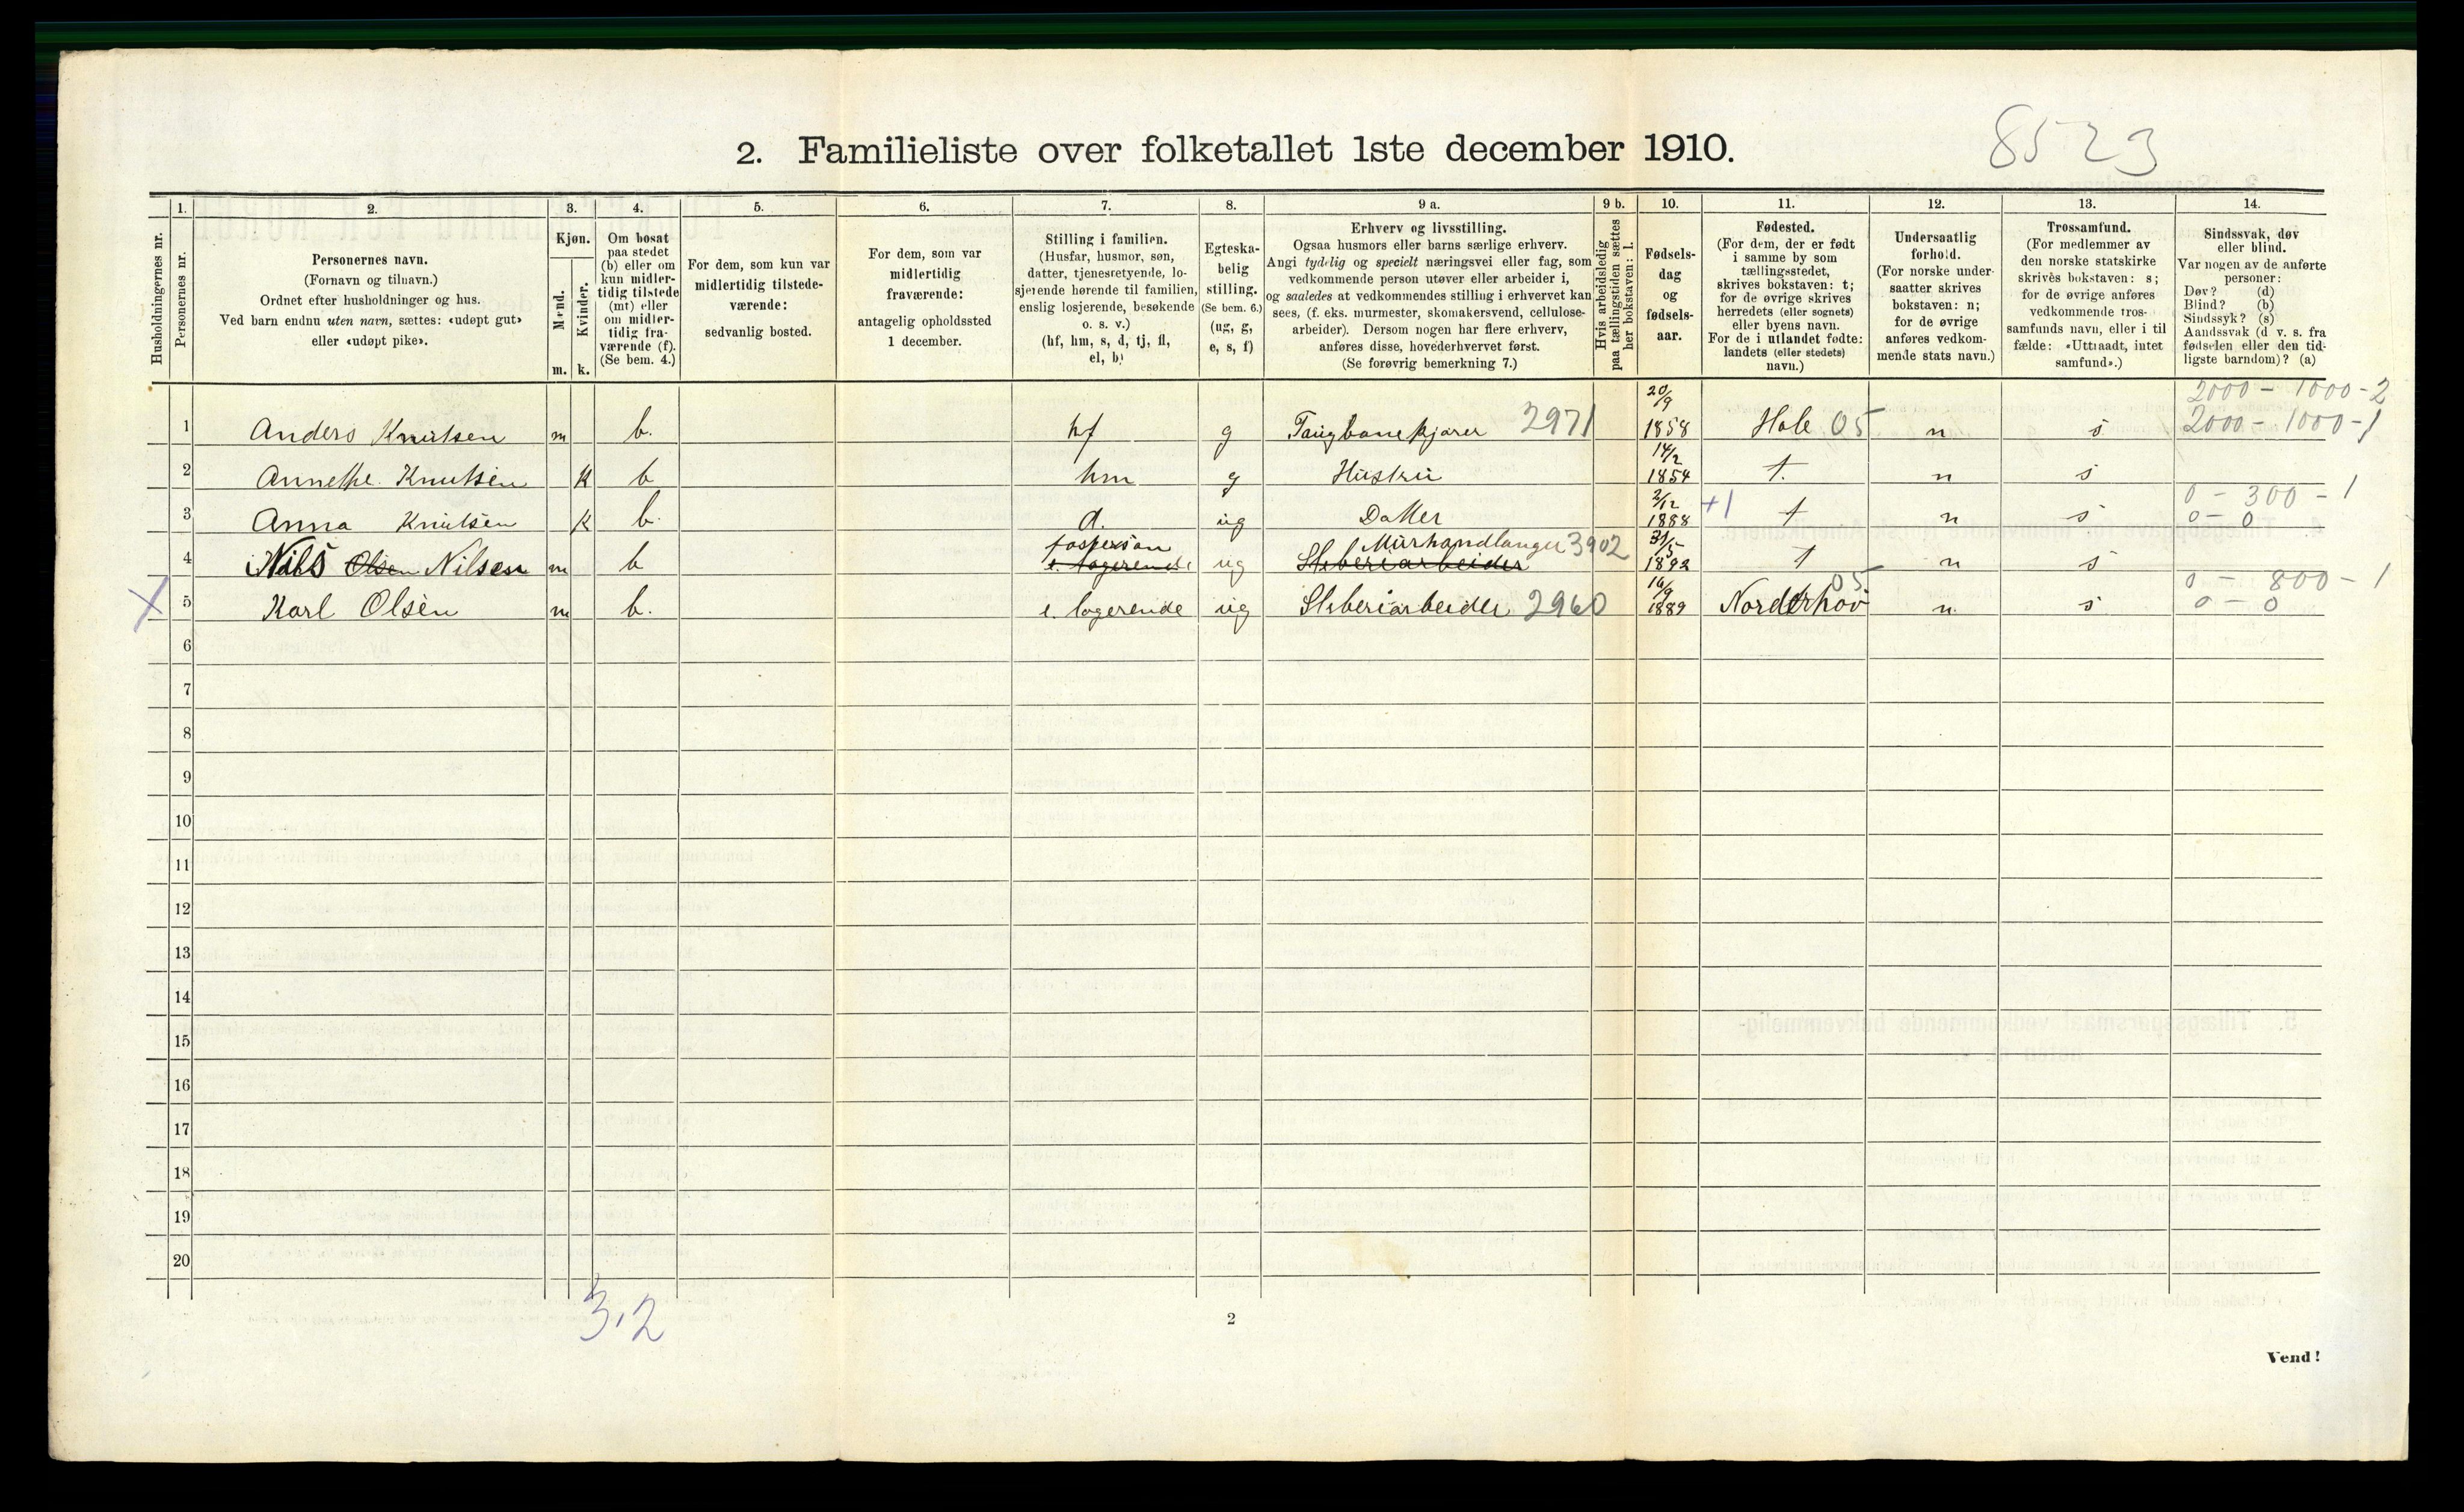 2. Familieliste over folketallet 1ste december 1910.
8523
1. 2. 3. 4. 5. 6. 7. 8. 9 a. 9 b. 10. 11. 12. 13. 14.
Husholdningernes nr.
Personernes nr.
Personernes navn.
(Fornavn og tilnavn.)
Ordnet efter husholdninger og hus.
Ved barn endnu uten navn, sættes: «udøpt gut»
eller «udøpt pike».
Kjøn.
Mænd.
Kvinder.
m. k.
Om bosat
paa stedet
(b) eller om
kun midler-
tidig tilstede
(mt) eller
om midler-
tidig fra-
værende (f).
(Se bem. 4.)
For dem, som kun var
midlertidig tilstede-
værende:
sedvanlig bosted.
For dem, som var
midlertidig
fraværende:
antagelig opholdssted
1 december.
Stilling i familien.
(Husfar, husmor, søn,
datter, tjenestetyende, lo-
sjerende hørende til familien,
enslig losjerende, besøkende
o. s. v.)
(hf, hm, s, d, tj, fl,
el, b)
Egteska-
belig
stilling.
(Se bem. 6.)
(ug, g,
e, s, f)
Erhverv og livsstilling.
Ogsaa husmors eller barns særlige erhverv.
Angi tydelig og specielt næringsvei eller fag, som
vedkommende person utøver eller arbeider i,
og saaledes at vedkommendes stilling i erhvervet kan
sees, (f. eks. murmester, skomakersvend, cellulose-
arbeider). Dersom nogen har flere erhverv,
anføres disse, hovederhvervet først.
(Se forøvrig bemerkning 7.)
Hvis arbeidsledig
paa tællingstiden sættes
her bokstaven: l.
Fødsels-
dag
og
fødsels-
aar.
Fødested.
(For dem, der er født
i samme by som
tællingsstedet,
skrives bokstaven: t;
for de øvrige skrives
herredets (eller sognets)
eller byens navn.
For de i utlandet fødte:
landets (eller stedets)
navn.)
Undersaatlig
forhold.
(For norske under-
saatter skrives
bokstaven: n;
for de øvrige
anføres vedkom-
mende stats navn.)
Trossamfund.
(For medlemmer av
den norske statskirke
skrives bokstaven: s;
for de øvrige anføres
vedkommende tros-
samfunds navn, eller i til-
fælde: «Uttraadt, intet
samfund».)
Sindssvak, døv
eller blind.
Var nogen av de anførte
personer:
Døv? (d)
Blind? (b)
Sindssyk? (s)
Aandssvak (d v. s. fra
fødselen eller den tid-
ligste barndom)? (a)
2000 - 1000 - 2
1 Anders Knutsen m b. hf g Taugbanekjører 2971 20/9 1858 Hole 05 n s 2000 - 1000 - 1
2 Annethe Knutsen k b hm g Hustru 14/2 1854 t. n s
0 - 300 - 1
3 Anna Knutsen k b. d. ug Datter 2/12 1888 +1 t n s 0 - 0
fostersøn Murhandlanger 3902
4 Nils Olsen Nilsen m b e. logerende ug Sleberiarbeider 31/5 1892 t n s
0 - 800 - 1
5 Karl Olsen m b. e. logerende ug Sleberiarbeider 2960 16/9 1889 Norderhov 05 n. s 0 - 0
6
7
8
9
10
11
12
13
14
15
16
17
18
19
20
3,2
2
Vend!